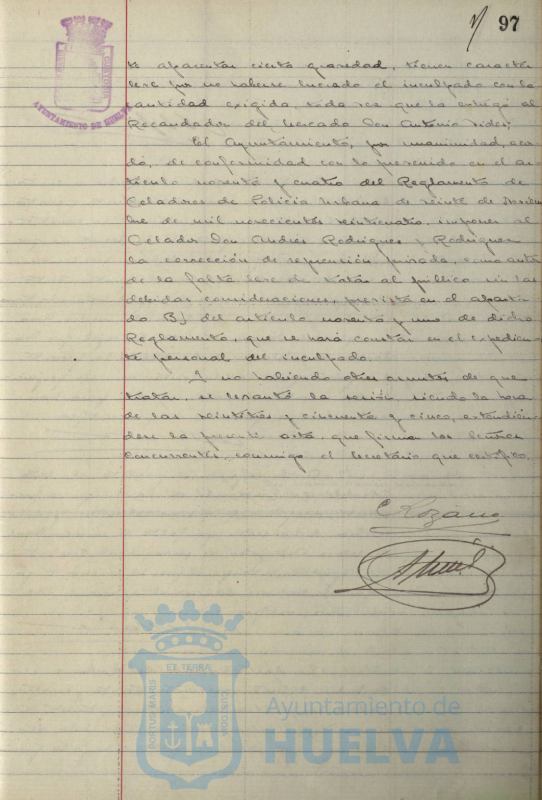 97
te aparentar cierta gravedad, tienen carácter
leve por no haberse lucrado el inculpado con la
cantidad exigida, toda vez que la entregó al
Recaudador del Mercado Don Antonio
El Ayuntamiento, por unanimidad, acor
dó, de conformidad con lo prevenido en el ar
tículo noventa y cuatro del Reglamento de
Celadores de Policía Urbana de veinte de Noviem
bre de mil novecientos veinticuatro, imponer al
Celador Don Andrés Rodríguez y Rodríguez
la corrección de reprensión privada, como autor
de la falta leve de tratar al público sin las
debidas consideraciones, prevista en el aparta
do B) del artículo noventa y uno de dicho
Reglamento, que se hará constar en el expedien
te personal del inculpado.
Y no habiendo otros asuntos de que
tratar, se levantó la sesión, siendo la hora
de las veintitrés y cincuenta y cinco, extendién
dose la presente acta, que firman los Señores
concurrentes, conmigo el Secretario que certifico.
Lozano
AYUNTAMIENTO DE HUELVA
PORTUS MARIS ET TERRÆ CUSTODIA
Ayuntamiento de
HUELVA